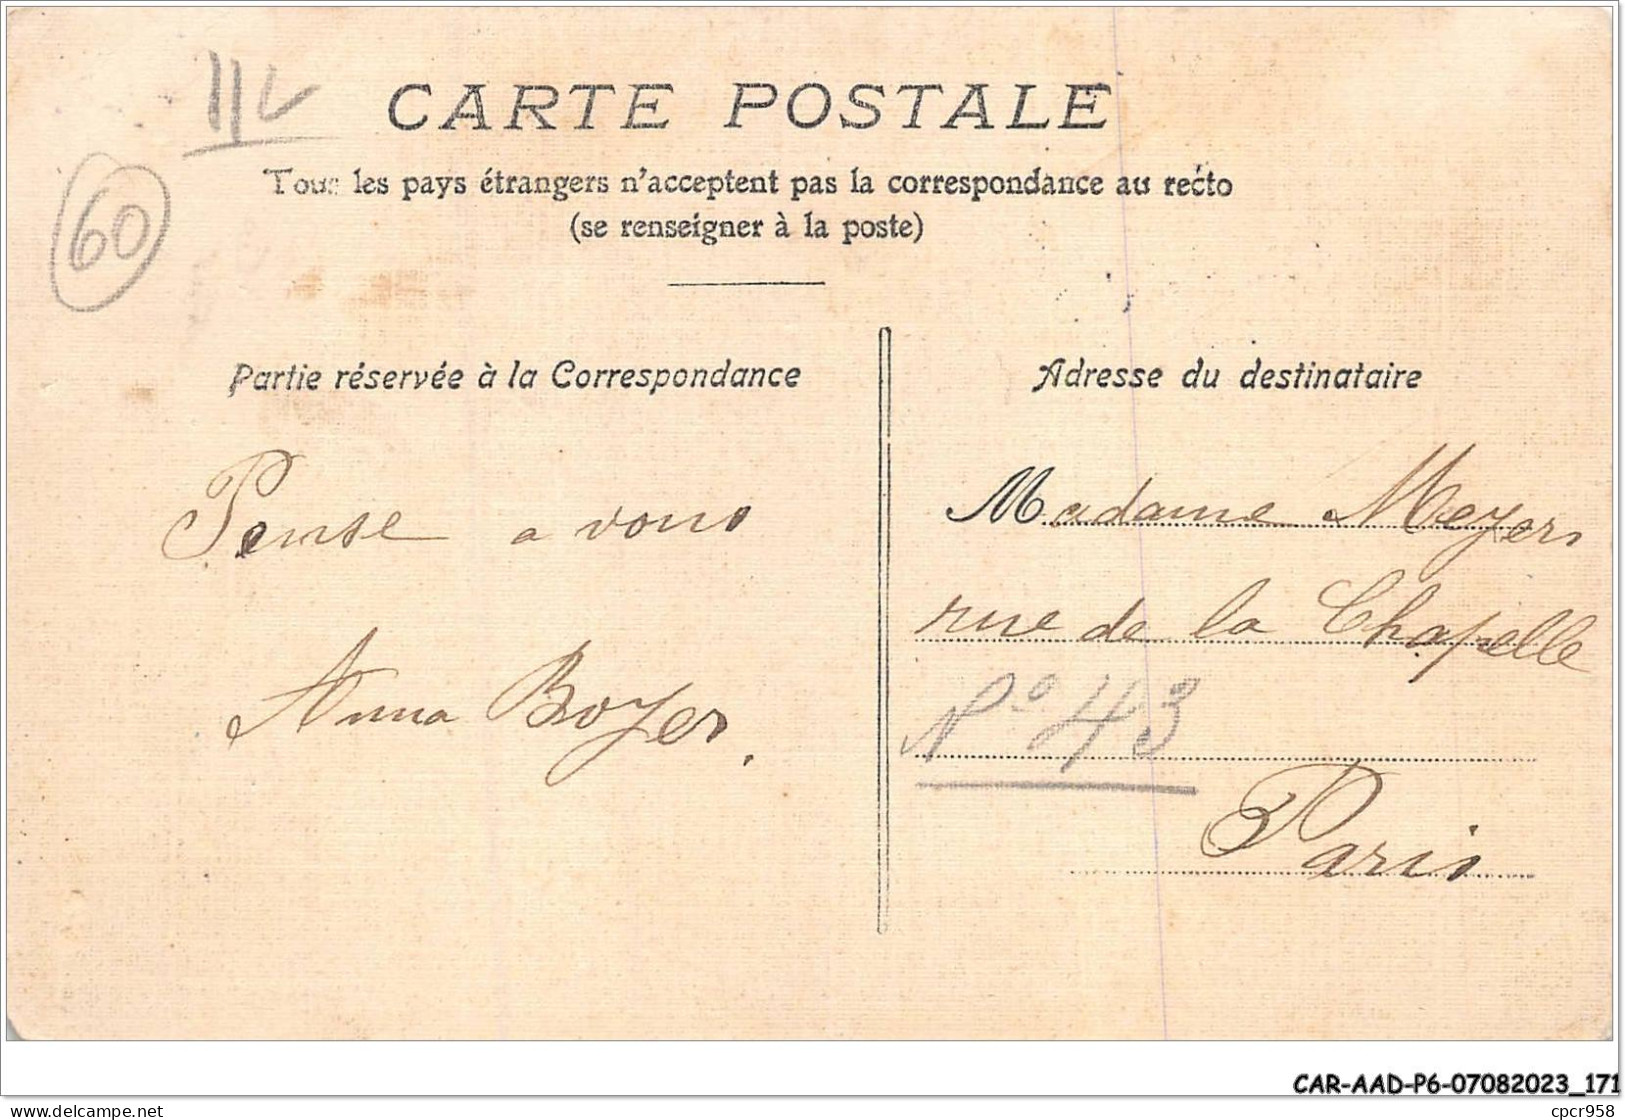 CARTE POSTALE
60
Tous les pays étrangers n'acceptent pas la correspondance au recto
(se renseigner à la poste)
Partie réservée à la Correspondance
Pense a vous
Anna Boyer.
Adresse du destinataire
Madame Meyers
rue de la Chapelle
N° 43
Paris
CAR-AAD-P6-07082023_171
delcampe.net
cpcr958